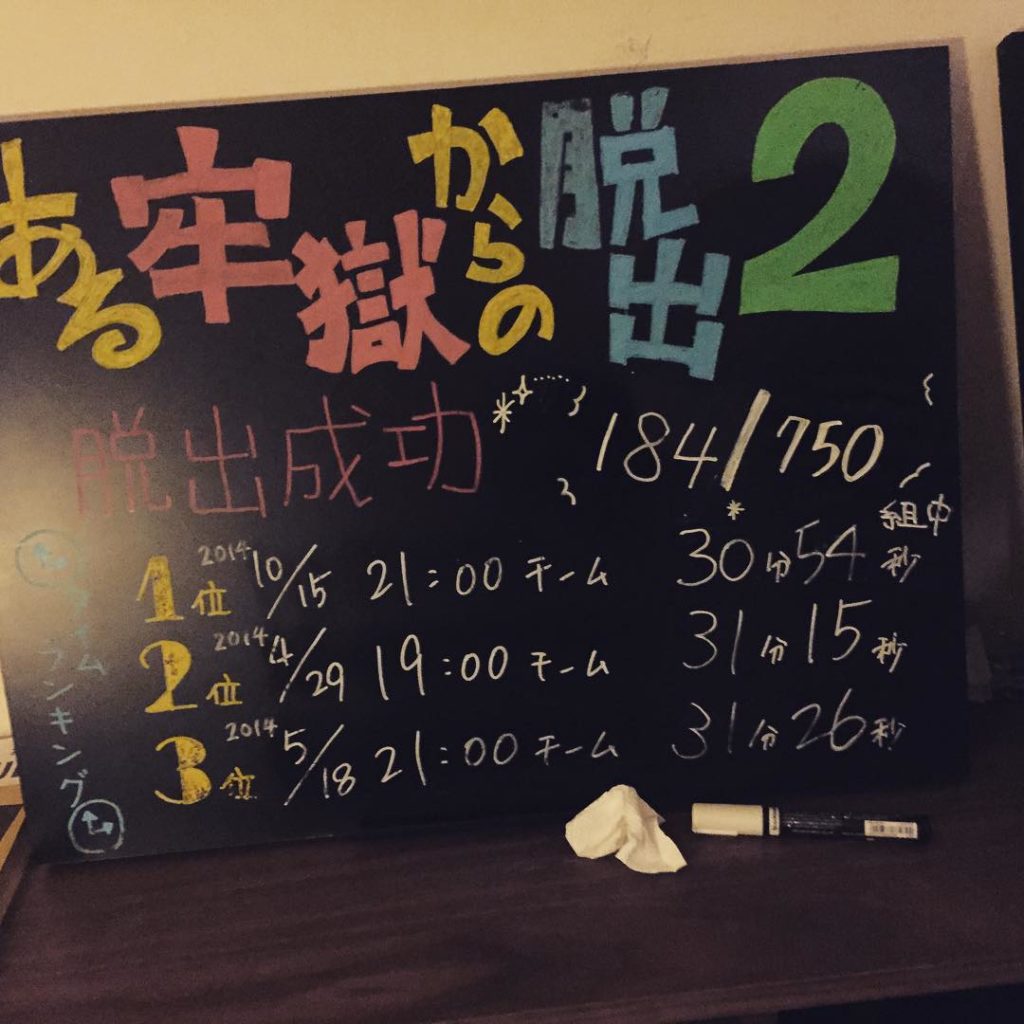 ある牢獄からの脱出2
脱出成功 184/750
組中
タイムランキング
1位 2014 10/15 21:00 チーム 30分54秒
2位 2014 4/29 19:00 チーム 31分15秒
3位 2014 5/18 21:00 チーム 31分26秒